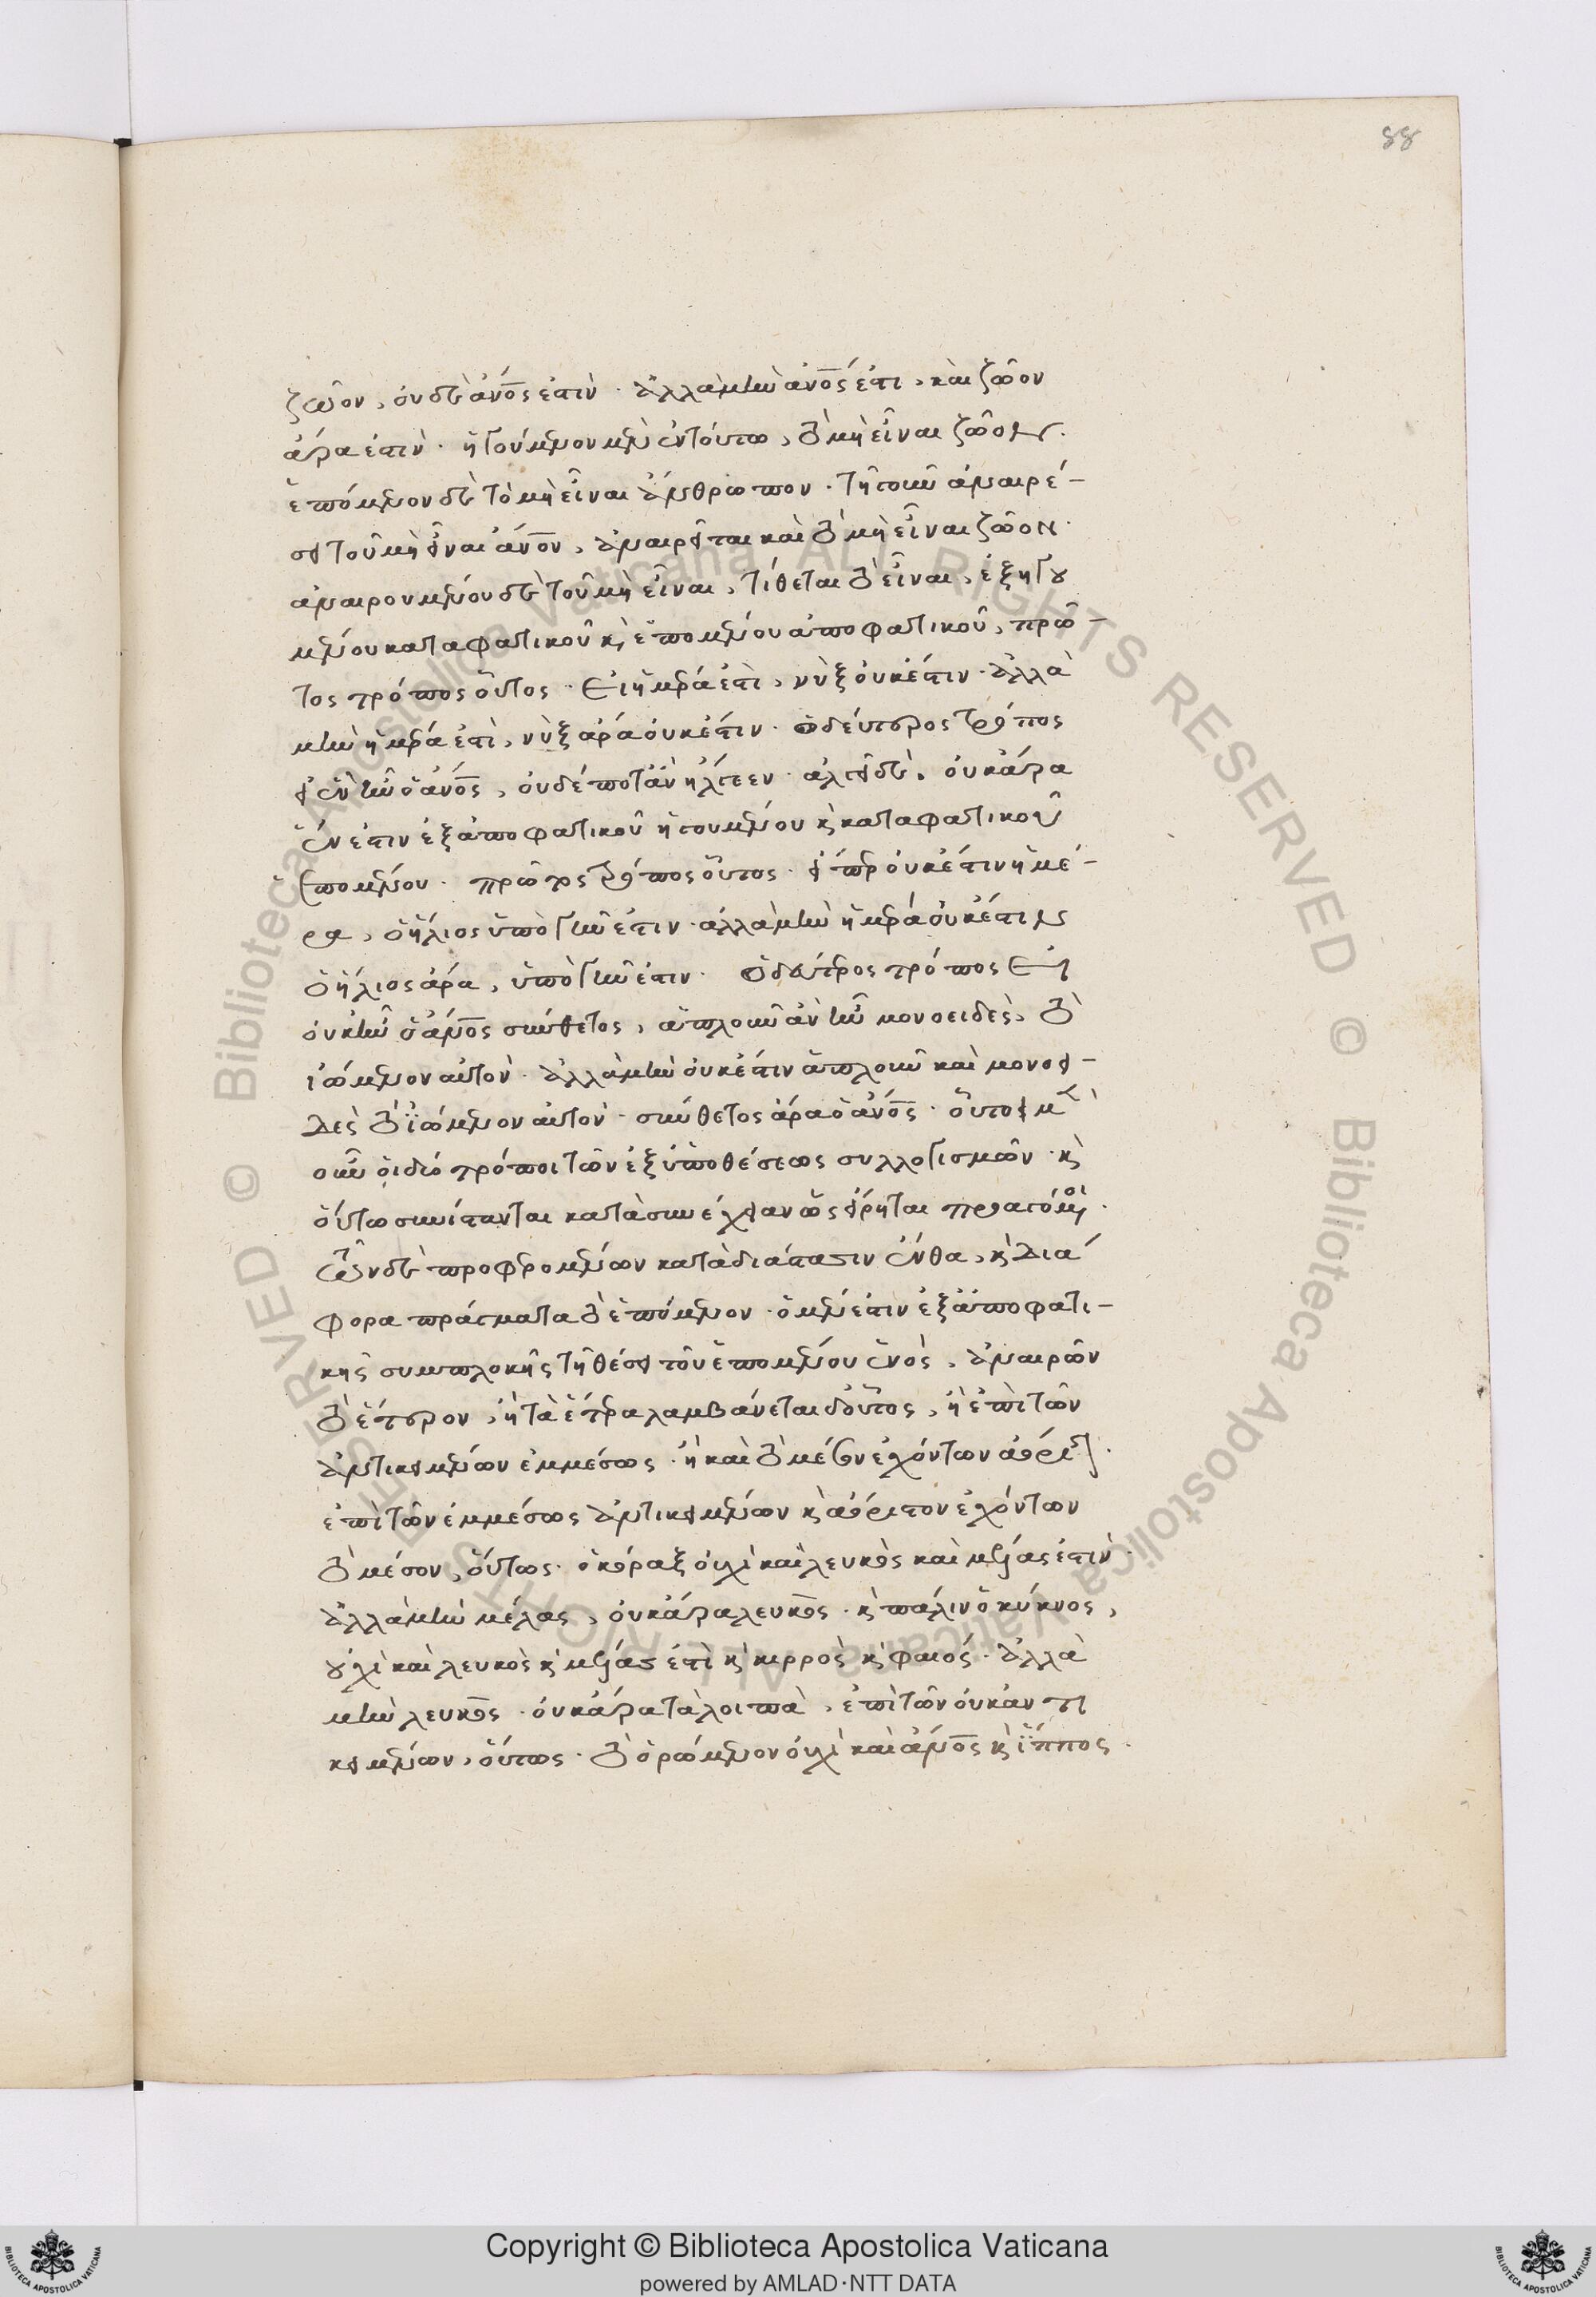 88
ζῶον, οὐδὲ ἄνος ἐστὶν. ἀλλὰ μὴν ἄνος ἐστι, καὶ ζῶον
ἄρα ἐστὶν. ἡγούμενον μὲν ἐν τούτω, τὸ μὴ εἶναι ζῶον.
ἑπόμενον δὲ τὸ μὴ εἶναι ἄνθρωπον. τῆ γοῦν ἀναιρέ-
σει τοῦ μὴ εἶναι ἄνον, ἀναιρεῖται καὶ τὸ μὴ εἶναι ζῶον.
ἀναιρουμένου δὲ τοῦ μὴ εἶναι, τίθεται τὸ εἶναι, ἐξ ἡγου
μένου καταφατικοῦ κὶ ἑπομένου ἀποφατικοῦ, πρῶ-
τος τρόπος οὗτος. εἰ ἡμέρα ἐστὶ, νὺξ οὐκ ἔστιν. ἀλλὰ
μὴν ἡμέρα ἐστὶ, νὺξ ἄρα οὐκ ἔστιν. ὁ δεύτερος τρόπος
εἰ ἓν ἦν ὁ ἄνος, οὐδέποτ ἂν ἤλγεεν. ἀλγεῖ δὲ. οὐκ ἄρα
ἕν ἐστιν ἐξ ἀποφατικοῦ ἡγουμένου κὶ καταφατικοῦ
ἑπομένου. πρῶτος τρόπος οὗτος. εἴπερ οὐκ ἔστιν ἡμέ-
ρα, ὁ ἥλιος ὑπὸ γῆν ἐστιν. ἀλλὰ μὴν ἡμέρα οὐκ ἔστιν
ὁ ἥλιος ἄρα, ὑπὸ γῆν ἐστιν. ὁ δεύτερος τρόπος εἰ
οὐκ ἦν ὁ ἄνος σύνθετος, ἁπλοῦν ἂν ἦν μονοειδὲς, τὸ
ἰώμενον αὐτὸν. ἀλλὰ μὴν οὐκ ἔστιν ἁπλοῦν καὶ μονοει-
δὲς τὸ ἰώμενον αὐτὸν. σύνθετος ἄρα ὁ ἄνος. οὗτοι μὲν
οὖν οἱ δύο τρόποι τῶν ἐξ ὑποθέσεως συλλογισμῶν. κὶ
οὕτω συνίστανται κατὰ συνέχειαν ὡς εἴρηται προαγόμενοι.
τῶν δὲ προφερομένων κατὰ διάστασιν ἔνθα, κὶ διά
φορα πράγματα τὸ ἑπόμενον. ὁ μέν ἐστιν ἐξ ἀποφατι-
κῆς συμπλοκῆς τῆ θέσει τοῦ ἑπομένου ἑνὸς, ἀναιρῶν
τὸ ἕτερον, ἢ τὰ ἕτερα λαμβάνεται δ οὗτος, ἢ ἐπὶ τῶν
ἀντικειμένων ἐμμέσως. ἢ καὶ τὸ μέσον ἐχόντων ἀόριστον.
ἐπὶ τῶν ἐμμέσως ἀντικειμένων κὶ ἀόριστον ἐχόντων
τὸ μέσον, οὕτως. ὁ κόραξ οὐχὶ καὶ λευκὸς καὶ μέλας ἐστὶν.
ἀλλὰ μὴν μέλας, οὐκ ἄρα λευκὸς. κὶ πάλιν ὁ κύκνος,
οὐχὶ καὶ λευκὸς κὶ μέλας ἐστὶ κὶ κιρρὸς κὶ φαιός. ἀλλὰ
μὴν λευκὸς. οὐκ ἄρα τὰ λοιπὰ, ἐπὶ τῶν οὐκ ἀντι
κειμένων, οὕτως. τὸ ὁρώμενον οὐχὶ καὶ ἄνος κὶ ἵππος.
Copyright © Biblioteca Apostolica Vaticana
powered by AMLAD·NTT DATA
© Biblioteca Apostolica Vaticana ALL RIGHTS RESERVED
© Biblioteca Apostolica Vaticana ALL RIGHTS RESERVED